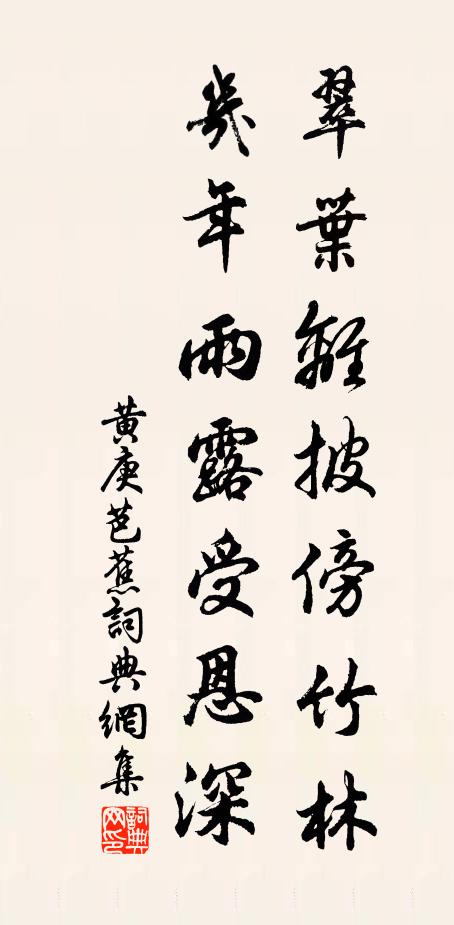 翠葉離披傍竹林
幾年雨露受恩深
黄庚芭蕉詞典網集
詞典網印